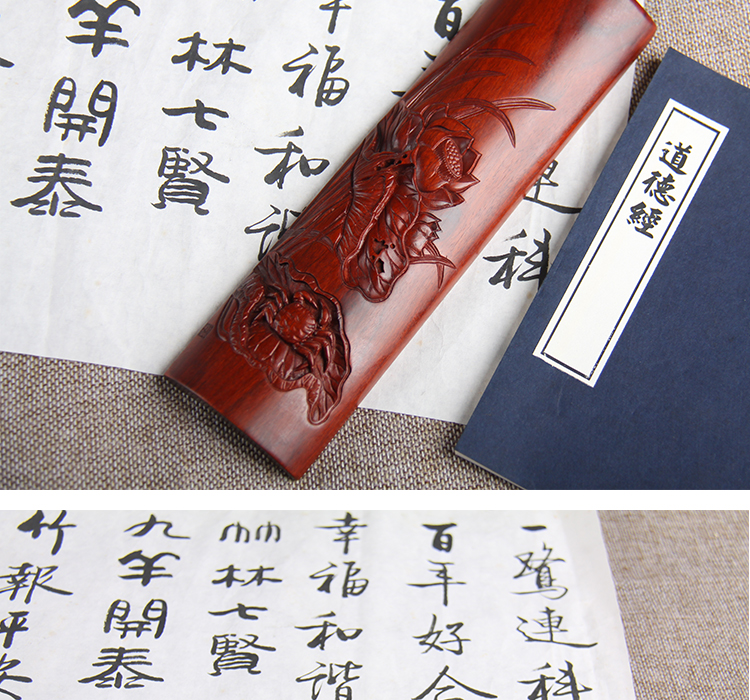 道德經
科
福和
林七賢
羊開泰
一鷺連科
百年好合
幸福和諧
竹林七賢
九羊開泰
竹報平安